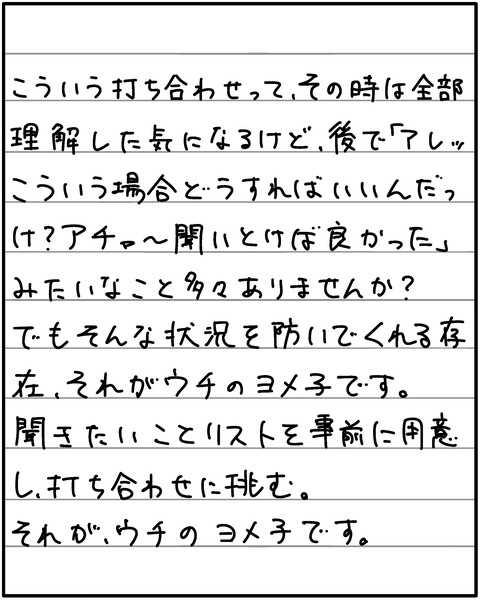 こういう打ち合わせって、その時は全部
理解した気になるけど、後で「アレッ
こういう場合どうすればいいんだっ
け?アチャ〜聞いとけば良かった」
みたいなこと多々ありませんか?
でもそんな状況を防いでくれる存
在、それがウチのヨメ子です。
聞きたいことリストを事前に用意
し、打ち合わせに挑む。
それが、ウチのヨメ子です。